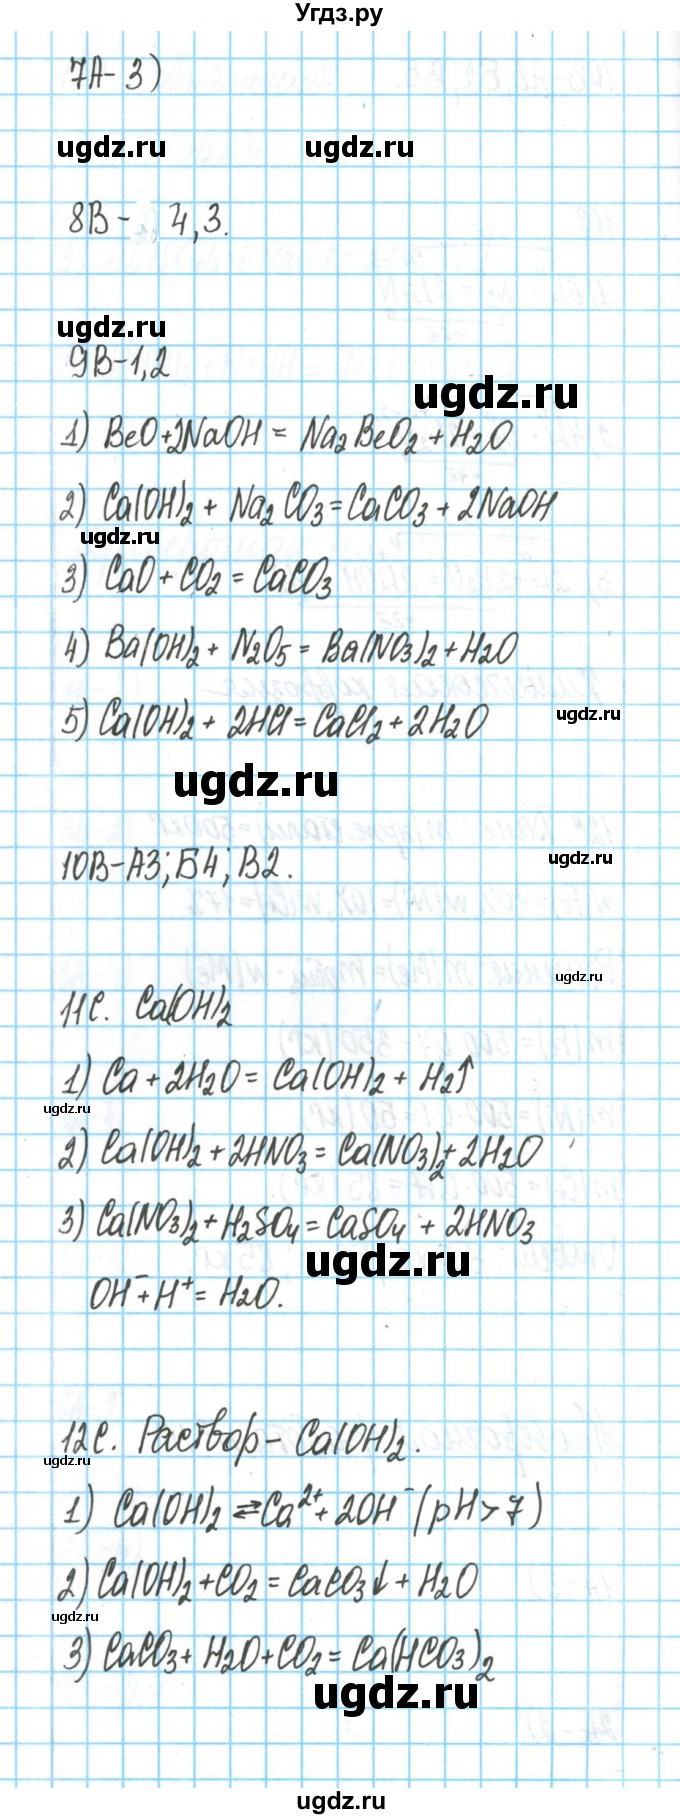 Угдз.ру
7А-3)
ugdz.ru ugdz.ru
8В- 4,3.
ugdz.ru
9В-1,2
ugdz.ru
1) BeO+2NaOH = Na2BeO2+H2O
2) Ca(OH)2 + Na2CO3=CaCO3+2NaOH
ugdz.ru
3) CaO+CO2=CaCO3
4) Ba(OH)2+ N2O5 = Ba(NO3)2+H2O
ugdz.ru
5) Ca(OH)2+ 2HCl=CaCl2+2H2O
ugdz.ru
ugdz.ru
10В-А3; Б4; В2.
ugdz.ru
11С. Ca(OH)2
1) Ca+2H2O= Ca(OH)2 + H2↑
ugdz.ru
2) Ca(OH)2+2HNO3=Ca(NO3)2+2H2O
3) Ca(NO3)2+H2SO4=CaSO4 + 2HNO3
ugdz.ru
OH⁻+H⁺= H2O.
12С. Раствор- Ca(OH)2.
ugdz.ru
1) Ca(OH)2 ⇄Ca²⁺+ 2OH⁻(pH>7)
2) Ca(OH)2+CO2=CaCO3↓+ H2O
ugdz.ru
3) CaCO3+ H2O+CO2= Ca(HCO3)2
ugdz.ru
ugdz.ru